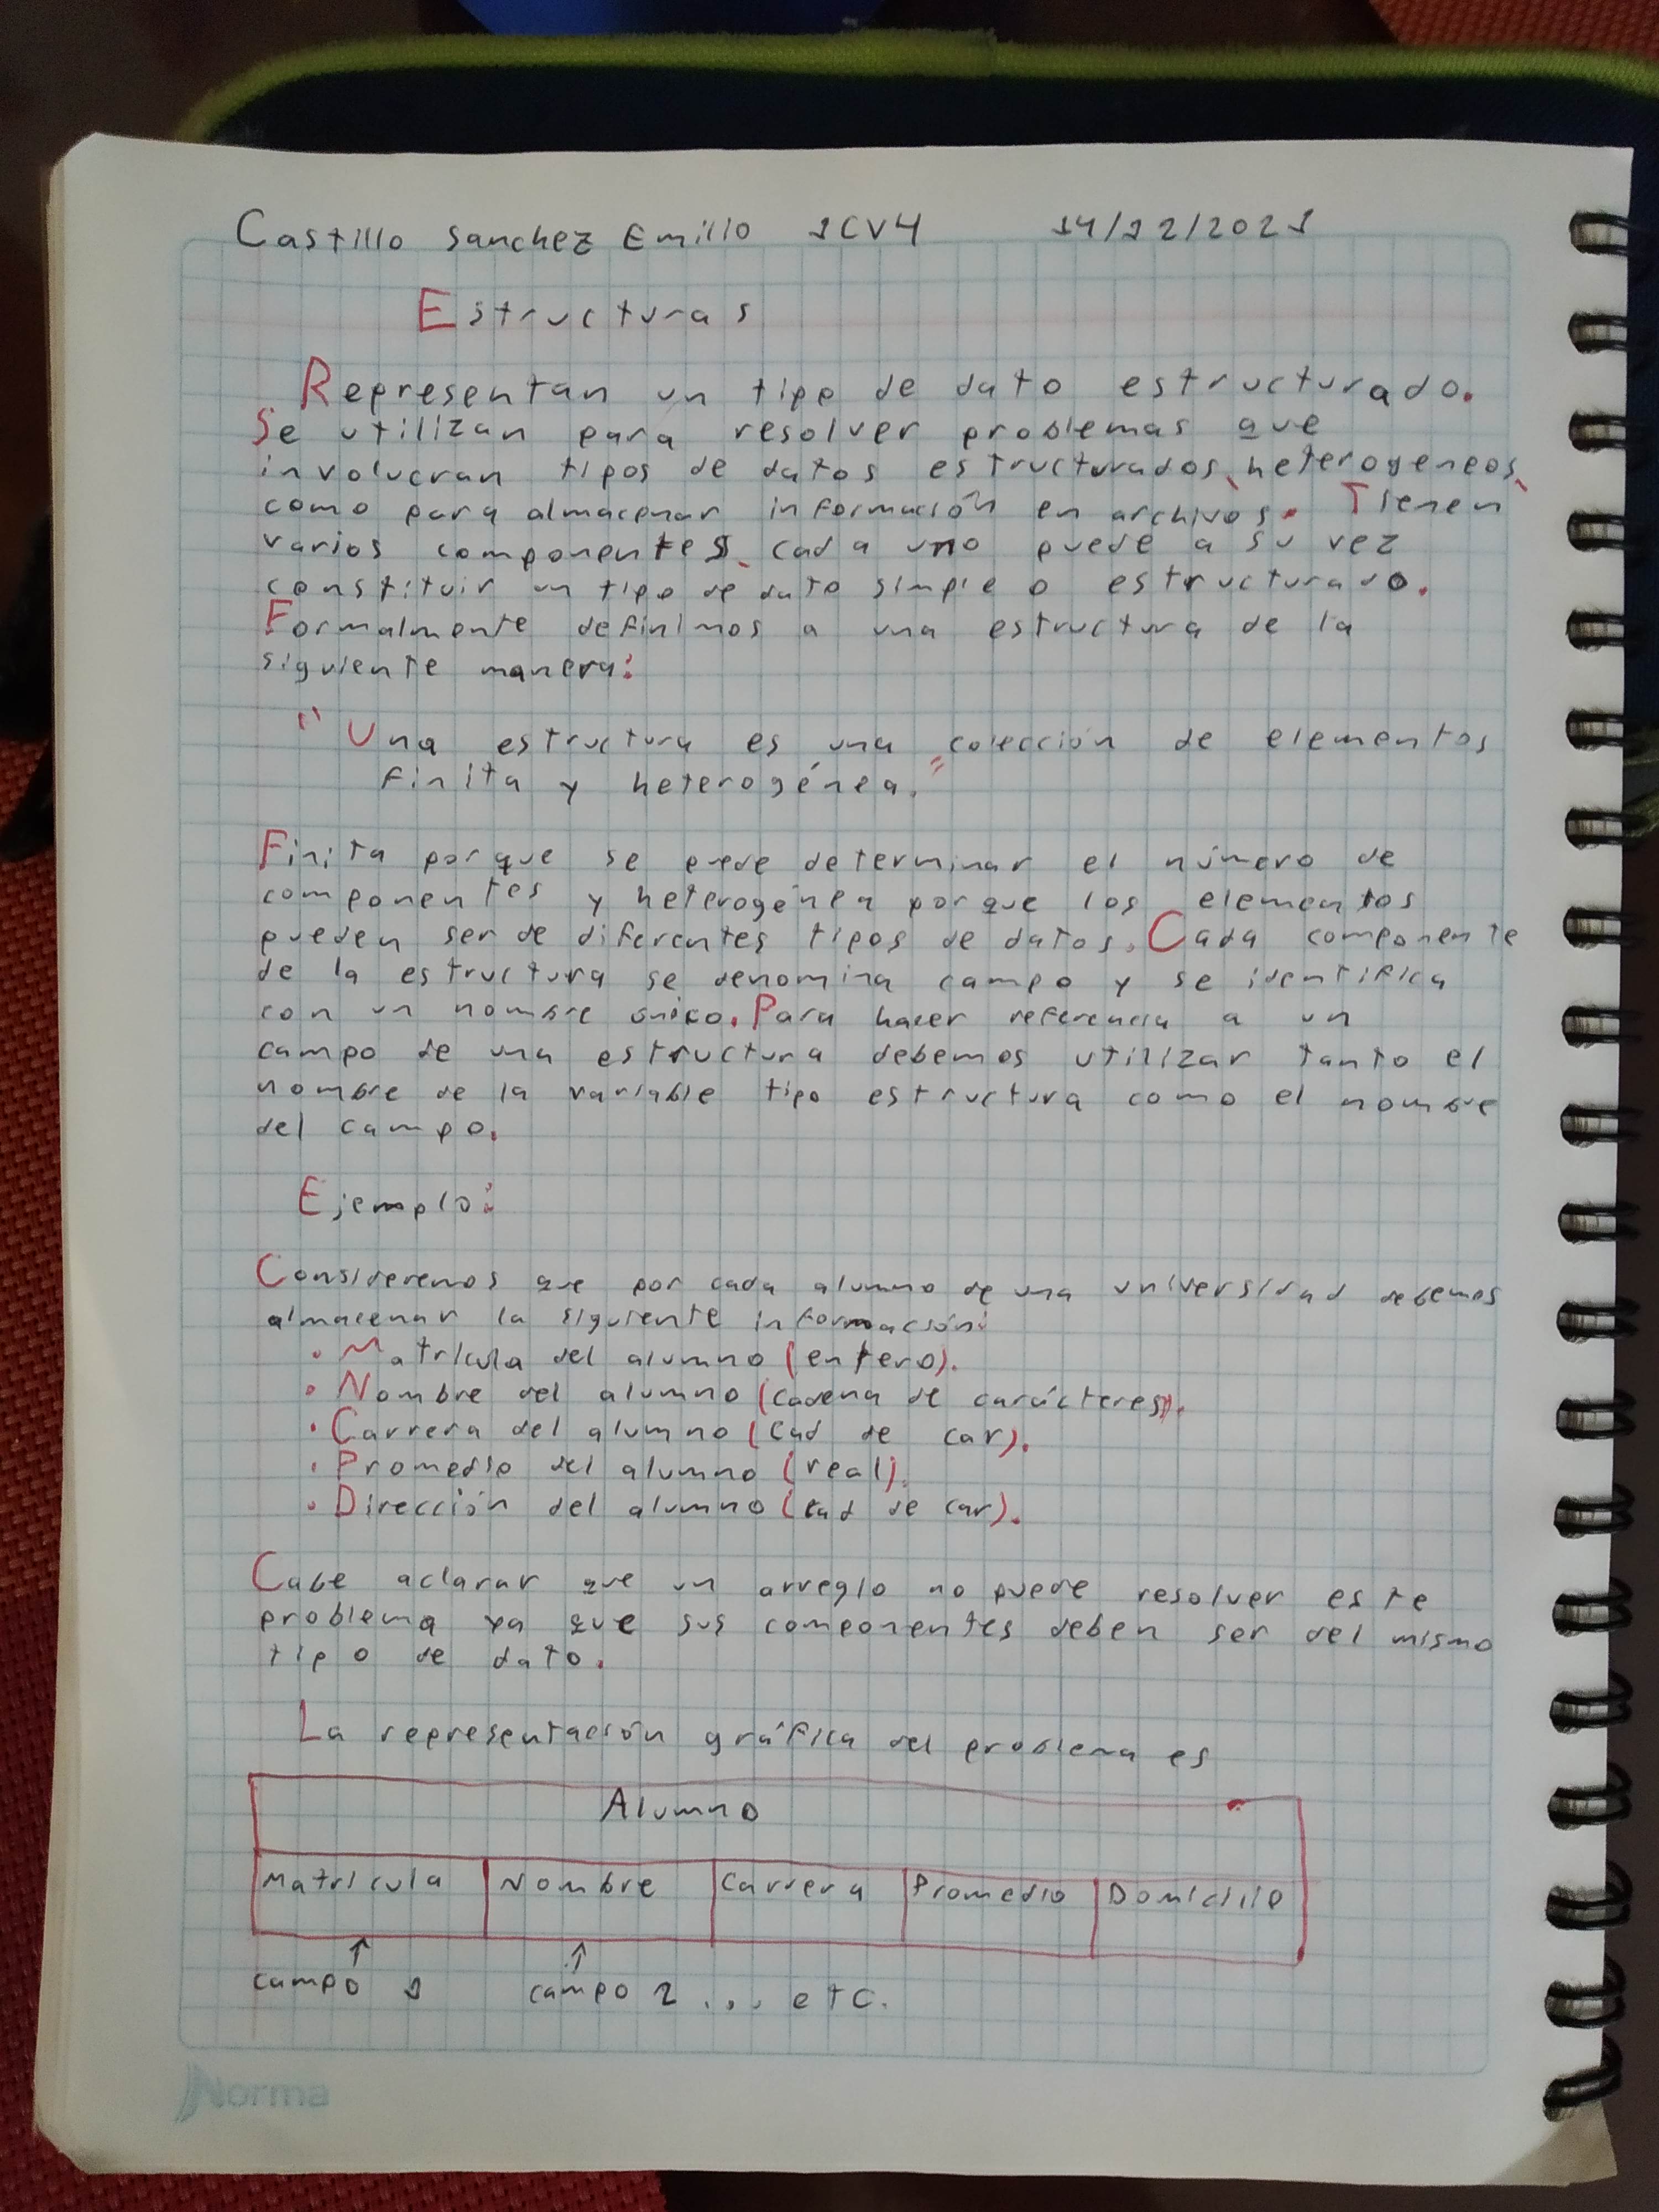 Castillo Sanchez Emilio 1CV4 14/12/2021
Estructuras
Representan un tipo de dato estructurado.
Se utilizan para resolver problemas que
involucran tipos de datos estructurados, heterogeneos,
como para almacenar información en archivos. Tienen
varios componentes, cada uno puede a su vez
constituir un tipo de dato simple o estructurado.
Formalmente definimos a una estructura de la
siguiente manera:
"Una estructura es una colección de elementos
finita y heterogénea."
Finita porque se puede determinar el número de
componentes y heterogénea porque los elementos
pueden ser de diferentes tipos de datos. Cada componente
de la estructura se denomina campo y se identifica
con un nombre único. Para hacer referencia a un
campo de una estructura debemos utilizar tanto el
nombre de la variable tipo estructura como el nombre
del campo.
Ejemplo:
Consideremos que por cada alumno de una universidad debemos
almacenar la siguiente información:
• Matrícula del alumno (entero).
• Nombre del alumno (cadena de carácteres).
• Carrera del alumno (cad de car).
• Promedio del alumno (real).
• Dirección del alumno (cad de car).
Cabe aclarar que un arreglo no puede resolver este
problema ya que sus componentes deben ser del mismo
tipo de dato.
La representación gráfica del problema es
Alumno
Matricula Nombre Carrera Promedio Domicilio
↑ ↑
campo 1 campo 2 ... etc.
Norma